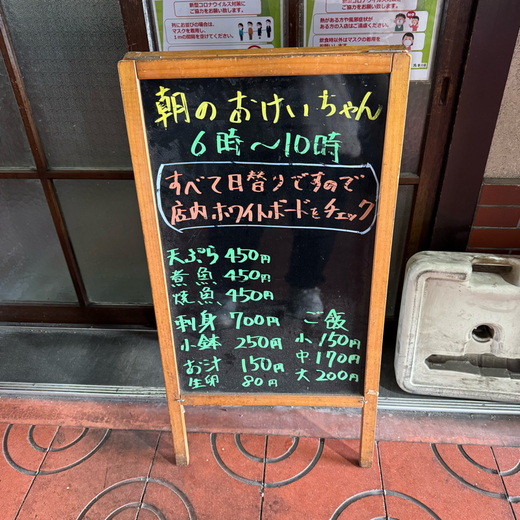 新型コロナウイルス対策に
ご協力をお願い致します。
列にお並びの場合は、
マスクを着用し
1mの間隔を空けてください。
ご協力をお願い致します。
熱がある方や風邪症状が
ある方の入店はご遠慮ください。
飲食時以外はマスクの
着用をお願い致します。
朝のおけいちゃん
6時〜10時
すべて日替りですので
店内ホワイトボードをチェック
天ぷら 450円
煮魚 450円
焼魚 450円
刺身 700円
小鉢 250円
お汁 150円
生卵 80円
ご飯
小 150円
中 170円
大 200円